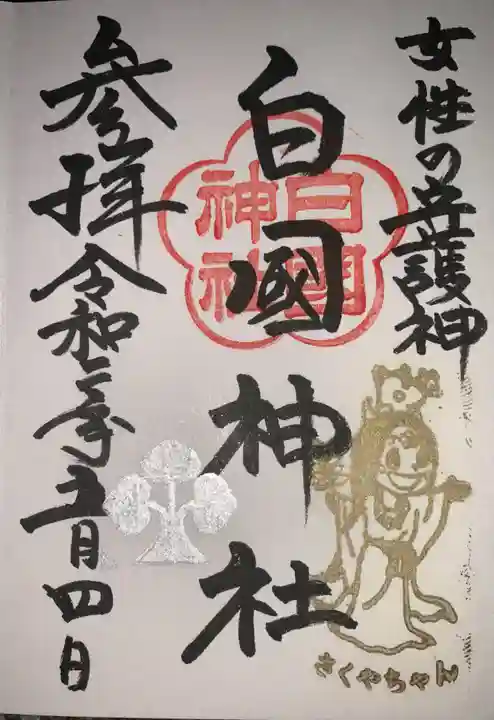 女性の守護神
白國神社
白國
神社
参拝令和三年五月四日
さくやちゃん